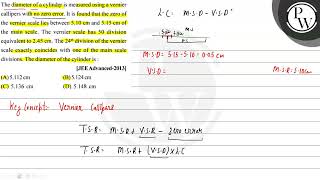 The diameter of a cylinder is measured using a vernier
callipers with no zero error. It is found that the zero of
the vernier scale lies between 5.10 cm and 5.15 cm of
the main scale. The vernier scale has 50 division
equivalent to 2.45 cm. The 24th division of the vernier
scale exactly coincides with one of the main scale
divisions. The diameter of the cylinder is :
[JEE Advanced-2013]
(A) 5.112 cm
(B) 5.124 cm
(C) 5.136 cm
(D) 5.148 cm
Key Concept:- Vernier Callipers
T·S·R = M·S·R + V·S·R - Zero error
T·S·R = M·S·R + (V·S·D) x L·C
L·C = M·S·D - V·S·D
M·S·D = 5.15 - 5.10 = 0.05 cm
V·S·D =
M·S·R = 5.10 cm
PW